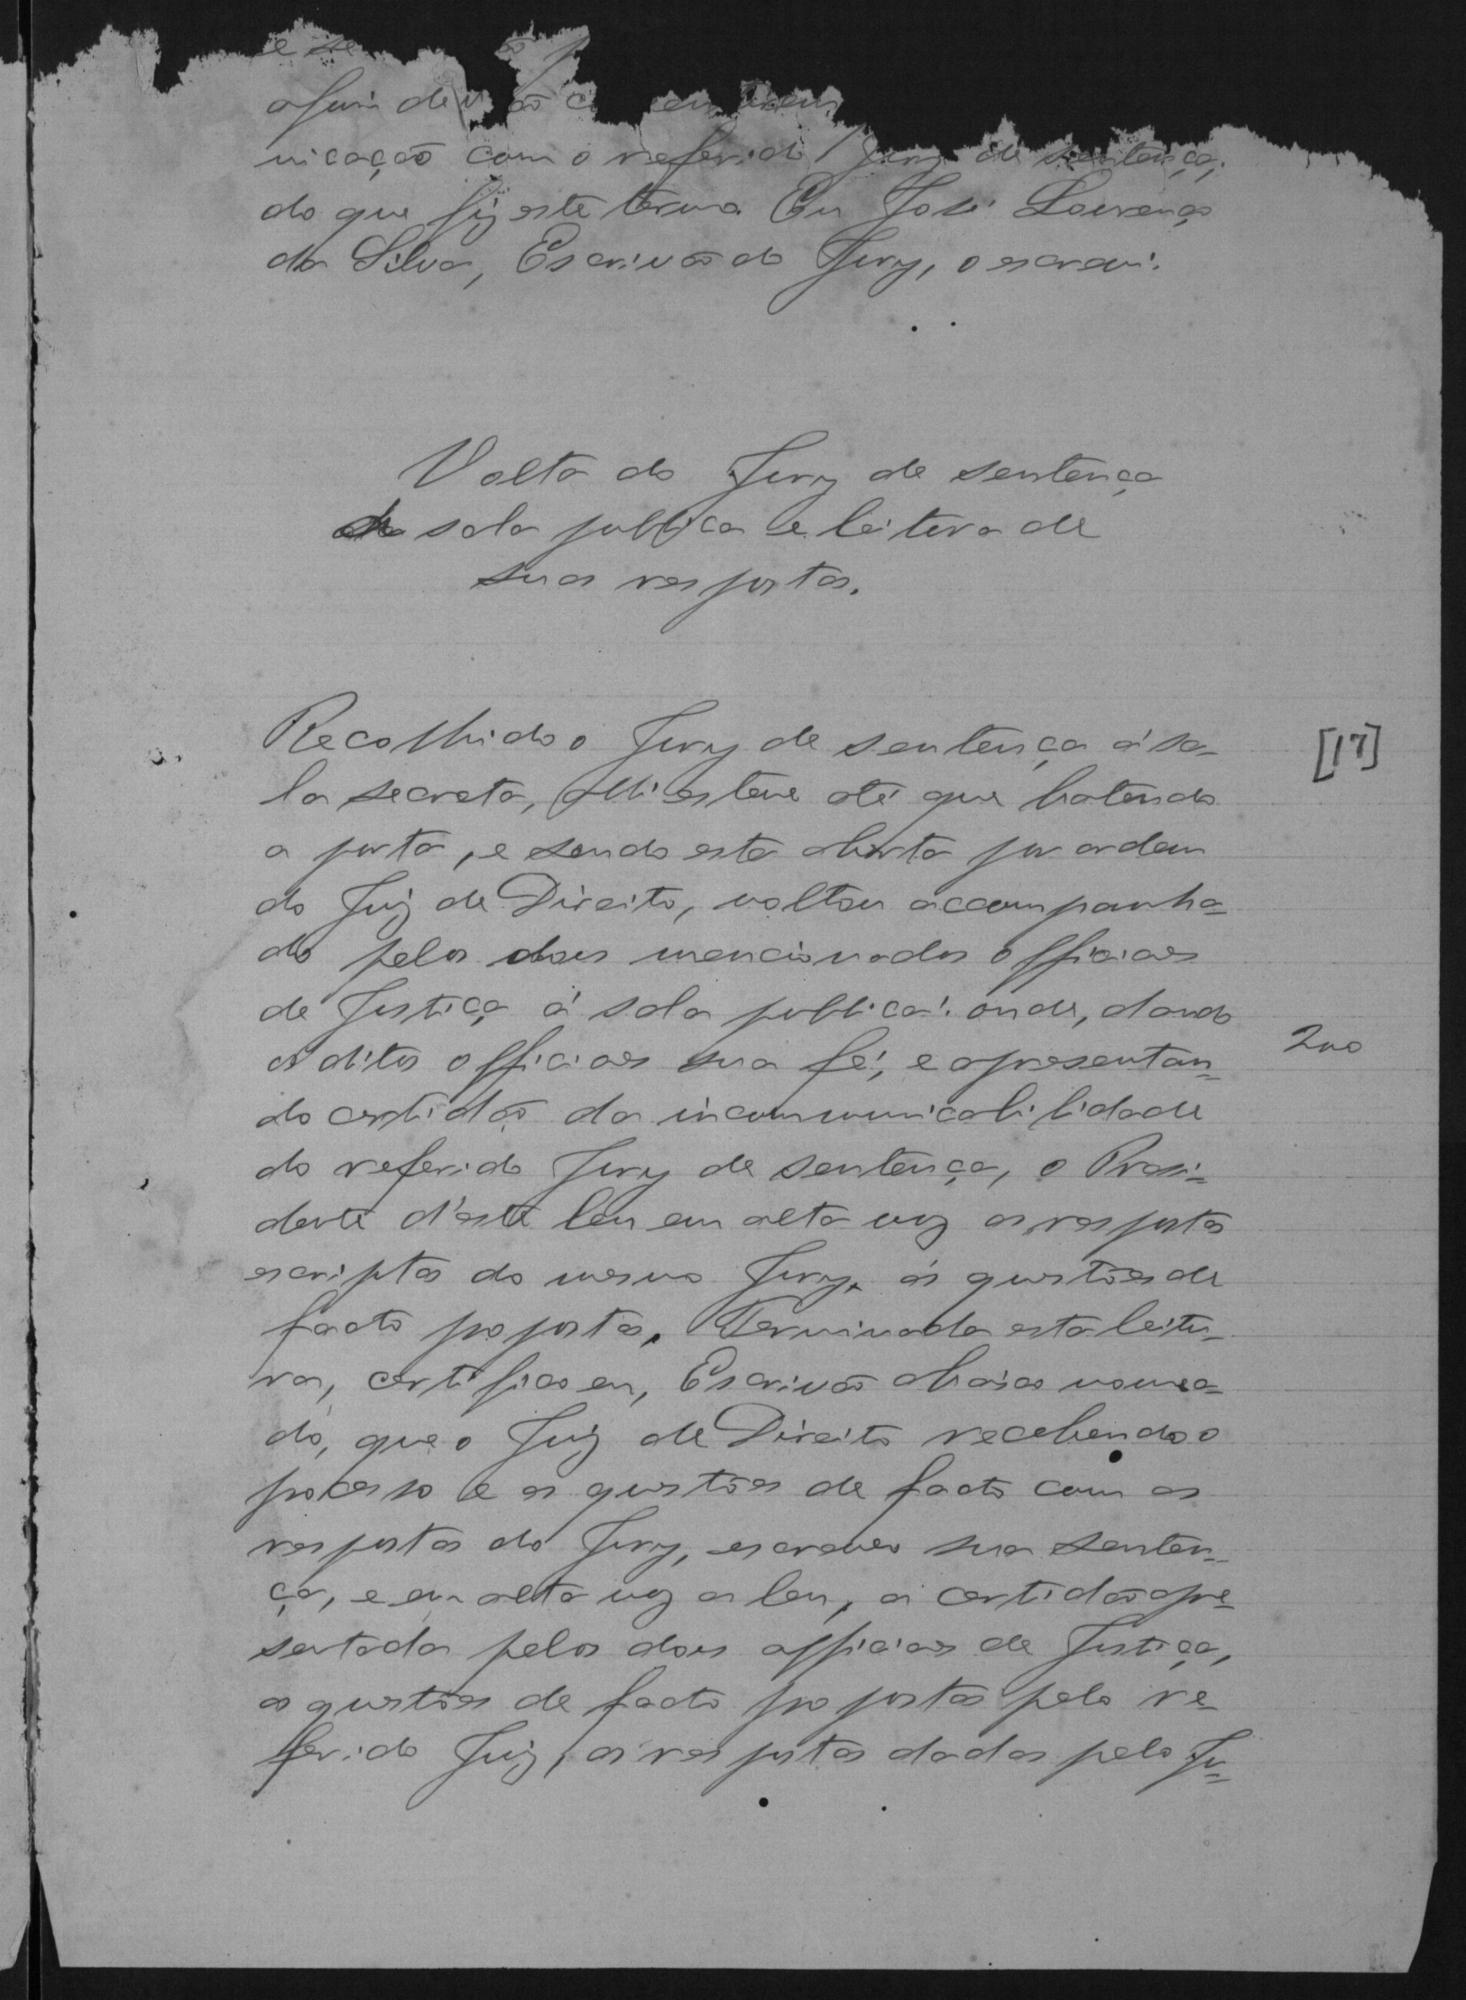 e se
afim de não
nicação com o referido Jury de sentença;
do que fiz este termo. Eu José Lourenço
da Silva, Escrivão do Jury, o escrevi.
Volta do Jury de sentença
da sala publica e leitura de
suas respostas.
Recolhido o Jury de sentença á sa-
la secreta, alli esteve até que batendo
a porta, e sendo esta aberta por ordem
do Juiz de Direito, voltou accompanha-
do pelos dous mencionados officiaes
de Justiça á sala publica: onde, dando
os ditos officiaes sua fé, e apresentan-
do certidão da incommunicabilidade
do referido Jury de sentença, o Presi-
dente d'este leu em alta voz as respostas
escriptas do mesmo Jury, ás questões de
facto propostas. Terminada esta leitu-
ra, certifico eu, Escrivão abaixo nomea-
do, que o Juiz de Direito recebendo o
processo e as questões de facto com as
respostas do Jury, escreveo sua senten-
ça, e em alta voz a leu, a certidão apre-
sentada pelos dous officiaes de Justiça,
as questões de facto propostas pelo re-
ferido Juiz, as respostas dadas pelo Ju-
[17]
200